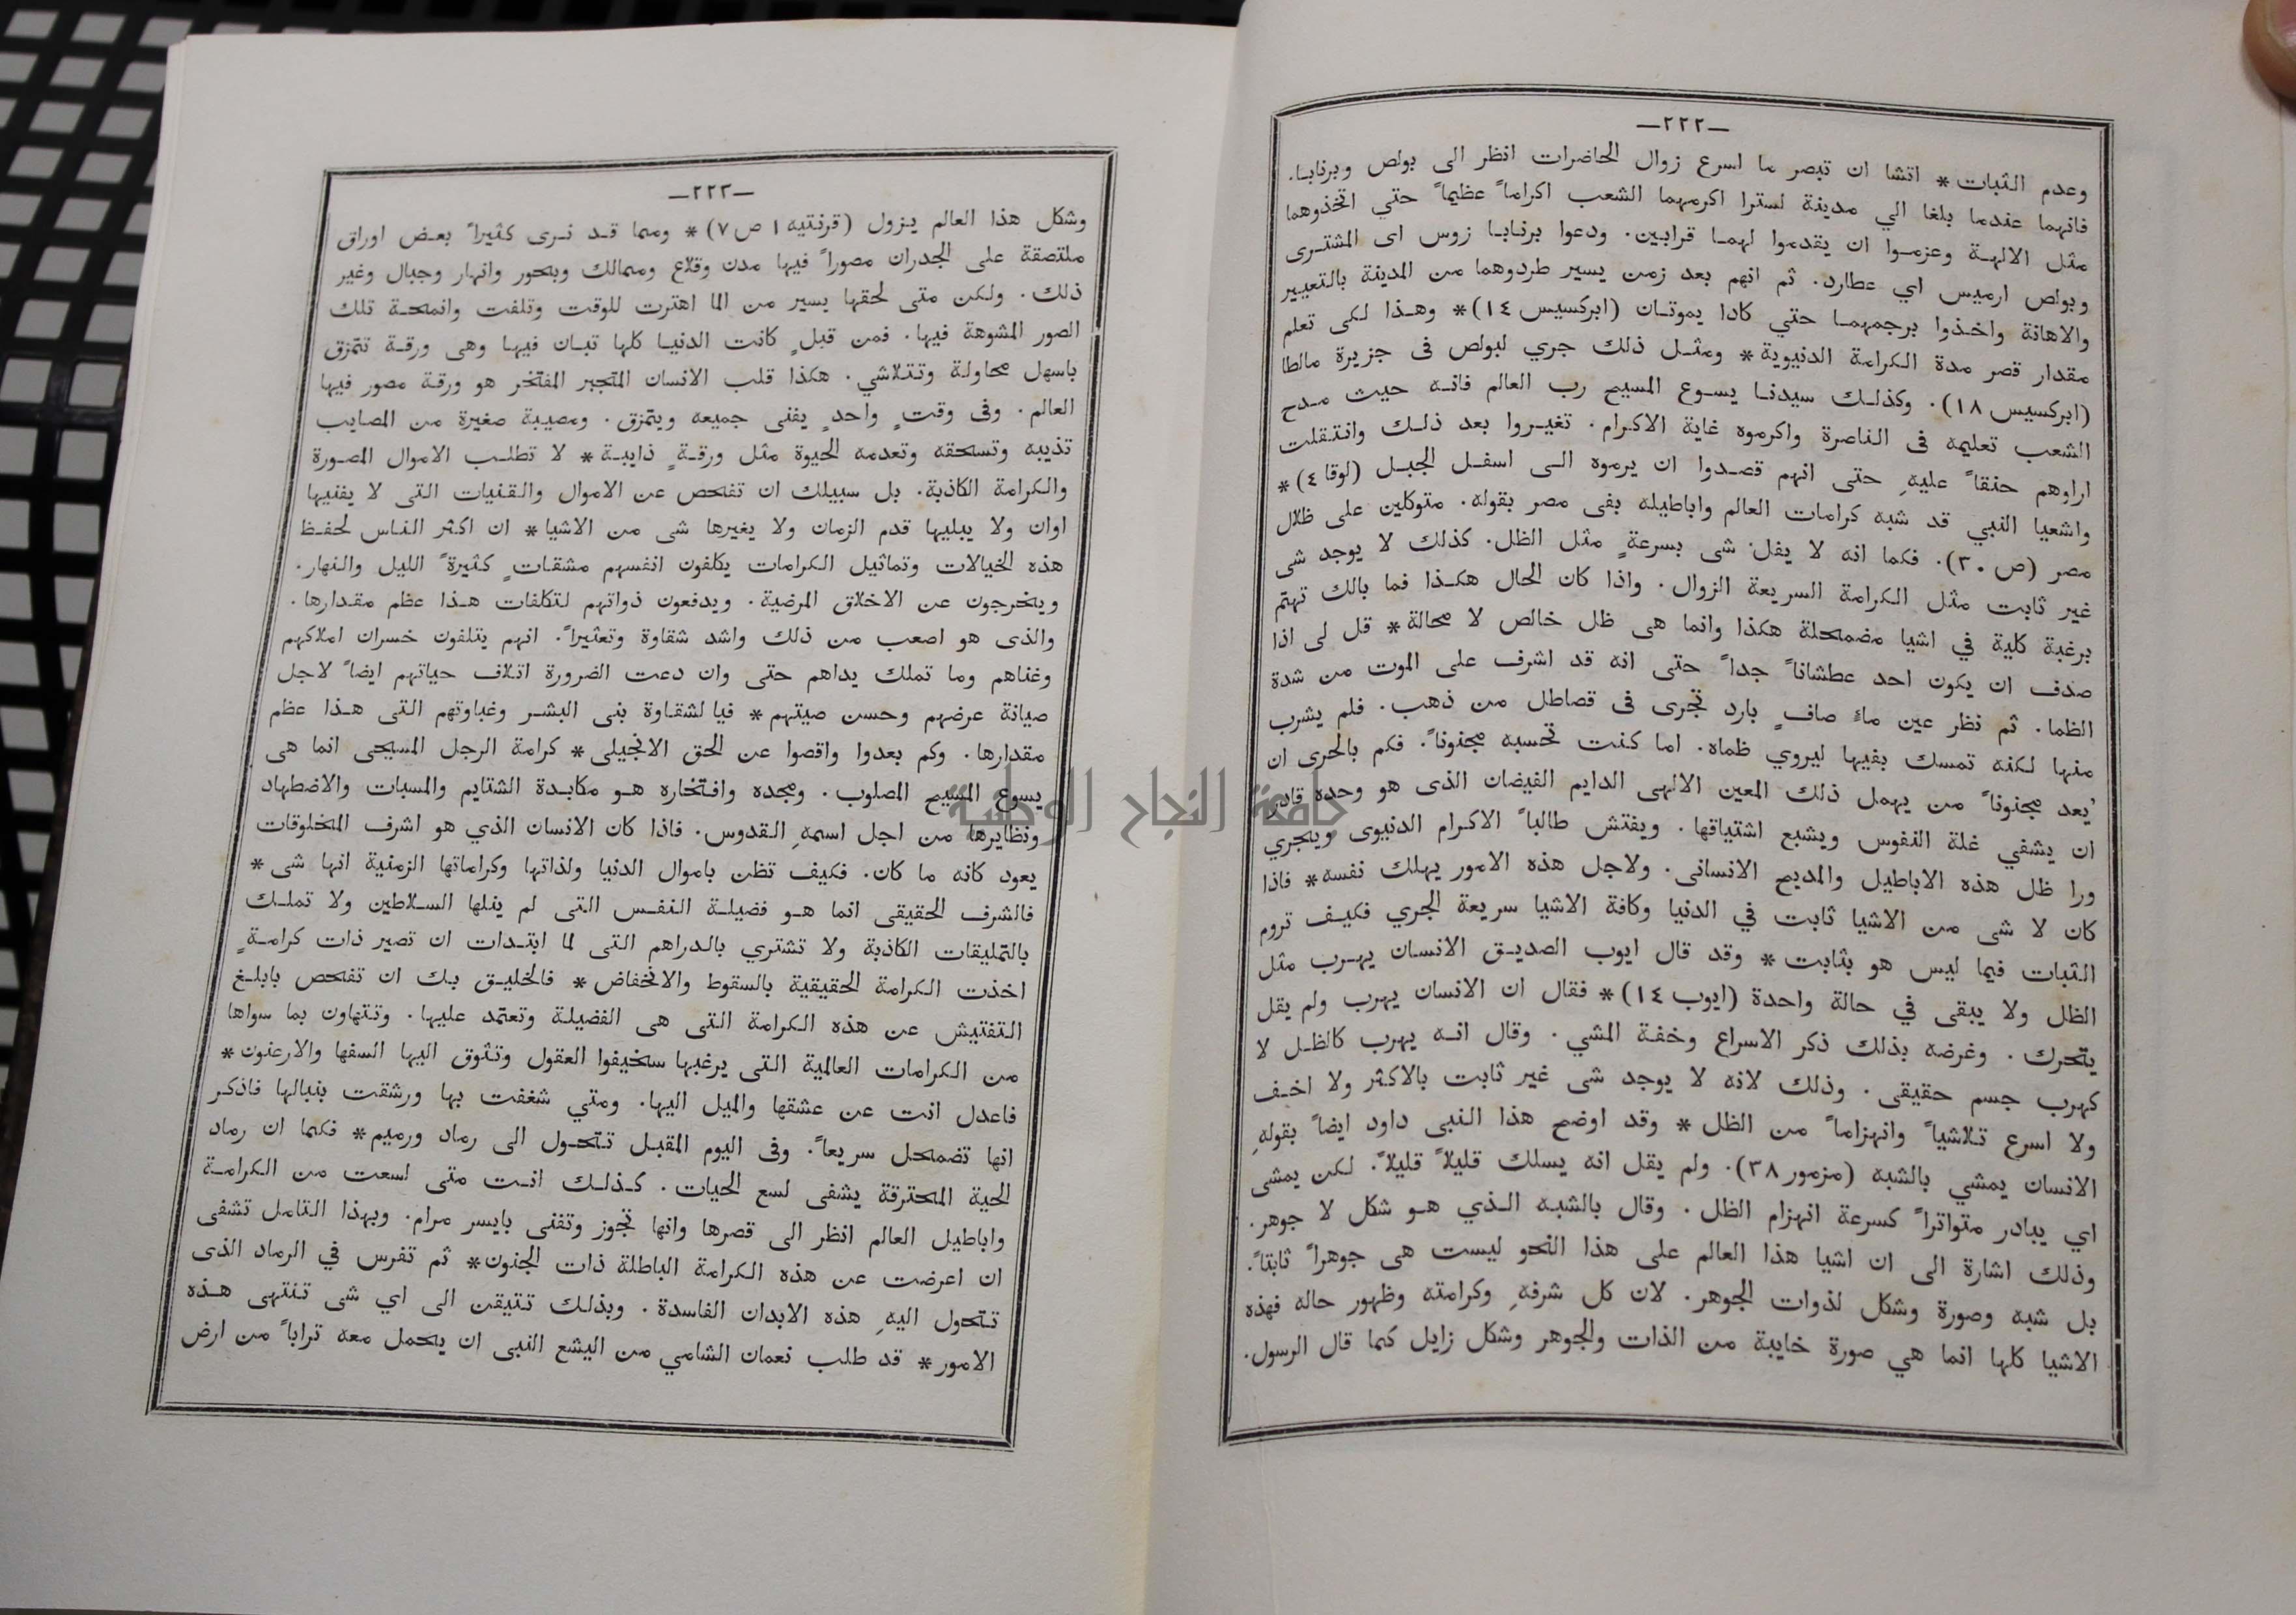 —٢٢٢—
وعدم الثبات* اتشا ان تبصر ما اسرع زوال الحاضرات انظر الى بولص وبرنابا.
فانهما عندما بلغا الي مدينة لسترا اكرمهما الشعب اكراماً عظيماً حتي اتخذوهما
مثل الالهة وعزموا ان يقدموا لهما قرابين. ودعوا برنابا زوس اى المشترى
وبولص ارميس اي عطارد. ثم انهم بعد زمن يسير طردوهما من المدينة بالتعيير
والاهانة واخذوا برجمهما حتي كادا يموتان (ابركسيس ١٤)* وهذا لكى تعلم
مقدار قصر مدة الكرامة الدنيوية* ومثل ذلك جري لبولص فى جزيرة مالطا
(ابركسيس ١٨). وكذلك سيدنا يسوع المسيح رب العالم فانه حيث مدح
الشعب تعليمه فى الناصرة واكرموه غاية الاكرام. تغيروا بعد ذلك وانتقلت
اراوهم حنقاً عليهِ حتى انهم قصدوا ان يرموه الى اسفل الجبل (لوقا ٤)*
واشعيا النبي قد شبه كرامات العالم واباطيله بفى مصر بقوله. متوكلين على ظلال
مصر (ص ٣٠). فكما انه لا يفل شى بسرعةٍ مثل الظل. كذلك لا يوجد شى
غير ثابت مثل الكرامة السريعة الزوال. واذا كان الحال هكذا فما بالك تهتم
برغبة كلية في اشيا مضمحلة هكذا وانما هى ظل خالص لا محالة* قل لى اذا
صدف ان يكون احد عطشاناً جداً حتى انه قد اشرف على الموت من شدة
الظما. ثم نظر عين ماءً صافٍ بارد تجرى فى قصاطل من ذهب. فلم يشرب
منها لكنه تمسك بفيها ليروي ظماه. اما كنت تحسبه مجنوناً. فكم بالحرى ان
يُعد مجنوناً من يهمل ذلك المعين الالهى الدايم الفيضان الذى هو وحده قادر
ان يشفي غلة النفوس ويشبع اشتياقها. ويفتش طالباً الاكرام الدنيوى ويجري
ورا ظل هذه الاباطيل والمديح الانسانى. ولاجل هذه الامور يهلك نفسه* فاذا
كان لا شى من الاشيا ثابت في الدنيا وكافة الاشيا سريعة الجري فكيف تروم
الثبات فيما ليس هو بثابت* وقد قال ايوب الصديق الانسان يهرب مثل
الظل ولا يبقى في حالة واحدة (ايوب ١٤)* فقال ان الانسان يهرب ولم يقل
يتحرك. وغرضه بذلك ذكر الاسراع وخفة المشي. وقال انه يهرب كالظل لا
كهرب جسم حقيقى. وذلك لانه لا يوجد شى غير ثابت بالاكثر ولا اخف
ولا اسرع تلاشياً وانهزاماً من الظل* وقد اوضح هذا النبى داود ايضاً بقولهِ
الانسان يمشي بالشبه (مزمور ٣٨). ولم يقل انه يسلك قليلاً قليلاً. لكن يمشى
اي يبادر متواتراً كسرعة انهزام الظل. وقال بالشبه الذي هو شكل لا جوهر.
وذلك اشارة الى ان اشيا هذا العالم على هذا النحو ليست هى جوهراً ثابتاً.
بل شبه وصورة وشكل لذوات الجوهر. لان كل شرفهِ وكرامته وظهور حاله فهذه
الاشيا كلها انما هي صورة خايبة من الذات والجوهر وشكل زايل كما قال الرسول.
—٢٢٣—
وشكل هذا العالم يزول (قرنتيه ١ ص ٧)* ومما قد نرى كثيراً بعض اوراق
ملتصقة على الجدران مصوراً فيها مدن وقلاع وممالك وبحور وانهار وجبال وغير
ذلك. ولكن متى لحقها يسير من الما اهترت للوقت وتلفت وانمحة تلك
الصور المشوهة فيها. فمن قبلٍ كانت الدنيا كلها تبان فيها وهى ورقة تتمزق
باسهل محاولة وتتلاشي. هكذا قلب الانسان المتجبر المفتخر هو ورقة مصور فيها
العالم. وفى وقتٍ واحدٍ يفنى جميعه ويتمزق. ومصيبة صغيرة من المصايب
تذيبه وتسحقه وتعدمه الحيوة مثل ورقةٍ ذايبة* لا تطلب الاموال المصورة
والكرامة الكاذبة. بل سبيلك ان تفحص عن الاموال والقنيات التى لا يفنيها
اوان ولا يبليها قدم الزمان ولا يغيرها شى من الاشيا* ان اكثر الناس لحفظ
هذه الخيالات وتماثيل الكرامات يكلفون انفسهم مشقاتٍ كثيرةً الليل والنهار.
ويخرجون عن الاخلاق المرضية. ويدفعون ذواتهم لتكلفات هذا عظم مقدارها.
والذى هو اصعب من ذلك واشد شقاوة وتعثيراً. انهم يتلفون خسران املاكهم
وغناهم وما تملك يداهم حتى وان دعت الضرورة اتلاف حياتهم ايضاً لاجل
صيانة عرضهم وحسن صيتهم* فيا لشقاوة بنى البشر وغباوتهم التى هذا عظم
مقدارها. وكم بعدوا واقصوا عن الحق الانجيلى* كرامة الرجل المسيحى انما هى
يسوع المسيح المصلوب. ومجده وافتخاره هو مكابدة الشتايم والمسبات والاضطهاد
ونظايرها من اجل اسمهِ القدوس. فاذا كان الانسان الذي هو اشرف المخلوقات
يعود كانه ما كان. فكيف تظن باموال الدنيا ولذاتها وكراماتها الزمنية انها شى*
فالشرف الحقيقى انما هو فضيلة النفس التى لم ينلها السلاطين ولا تملك
بالتمليقات الكاذبة ولا تشتري بالدراهم التى لما ابتدات ان تصير ذات كرامةٍ
اخذت الكرامة الحقيقية بالسقوط والانخفاض* فالخليق بك ان تفحص بابلغ
التفتيش عن هذه الكرامة التى هى الفضيلة وتعتمد عليها. وتتهاون بما سواها
من الكرامات العالمية التى يرغبها سخيفوا العقول وتثوق اليها السفها والارعنون*
فاعدل انت عن عشقها والميل اليها. ومتي شغفت بها ورشقت بنبالها فاذكر
انها تضمحل سريعاً. وفى اليوم المقبل تتحول الى رماد ورميم* فكما ان رماد
الحية المحترقة يشفى لسع الحيات. كذلك انت متى لسعت من الكرامة
واباطيل العالم انظر الى قصرها وانها تجوز وتفنى بايسر مرام. وبهذا التامل تشفى
ان اعرضت عن هذه الكرامة الباطلة ذات الجنون* ثم تفرس في الرماد الذى
تتحول اليهِ هذه الابدان الفاسدة. وبذلك تتيقن الى اي شى تنتهى هذه
الامور* قد طلب نعمان الشامي من اليشع النبى ان يحمل معه تراباً من ارض
جامعة النجاح الوطنية